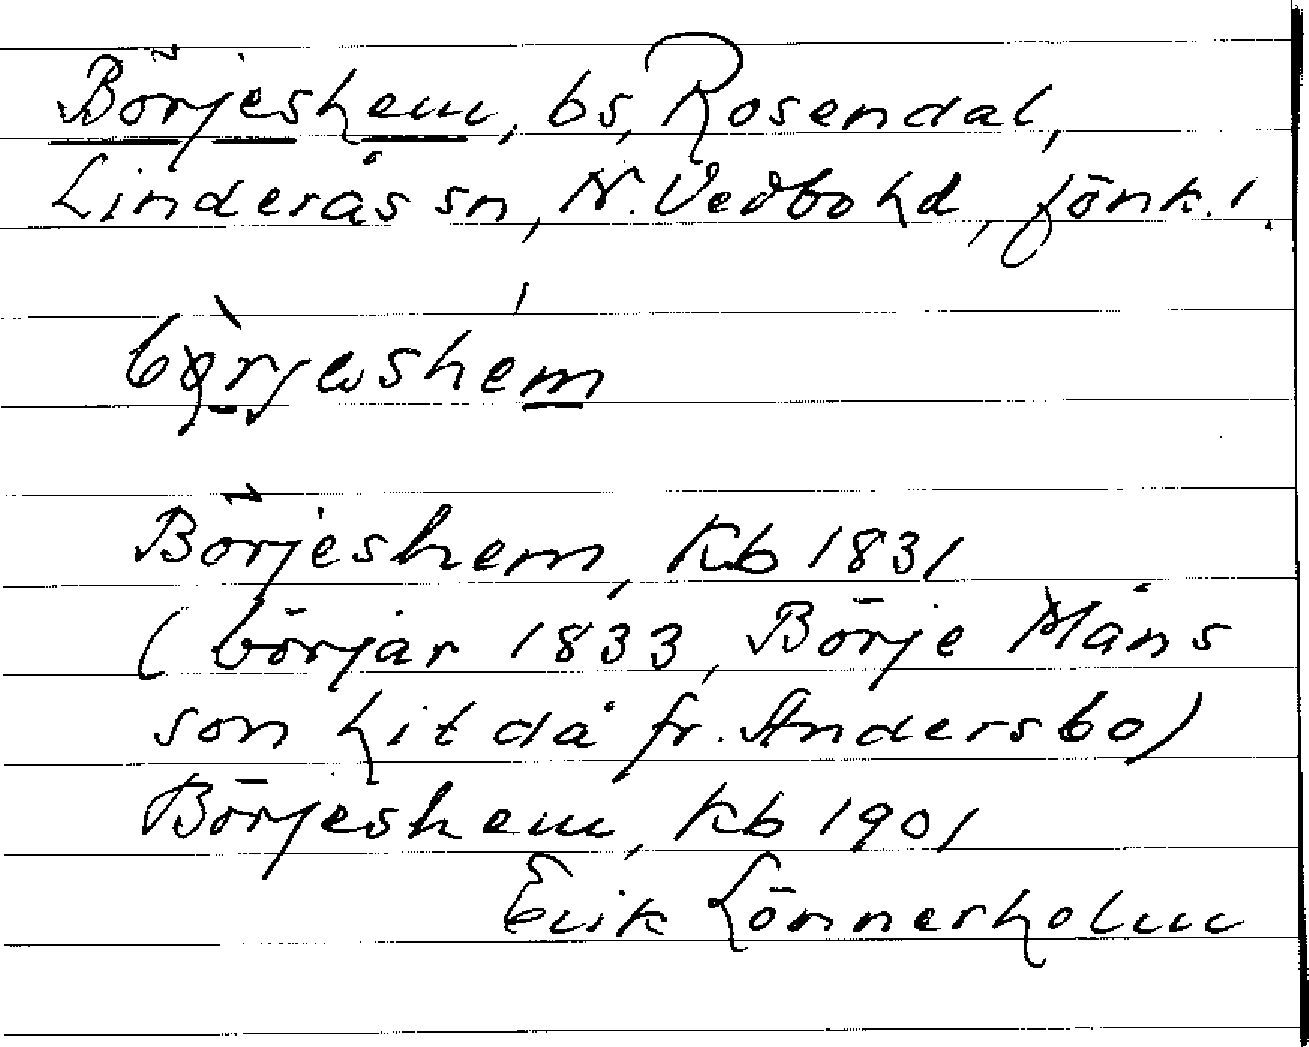 Börjeshem, bs, Rosendal,
Linderås sn, N. Vedbo hd, Jönk. l.
Börjeshem, Kb 1831
(börjar 1833, Börje Måns
son hit då fr. Andersbo)
Börjeshem, Kb 1901
Erik Lönnerholm